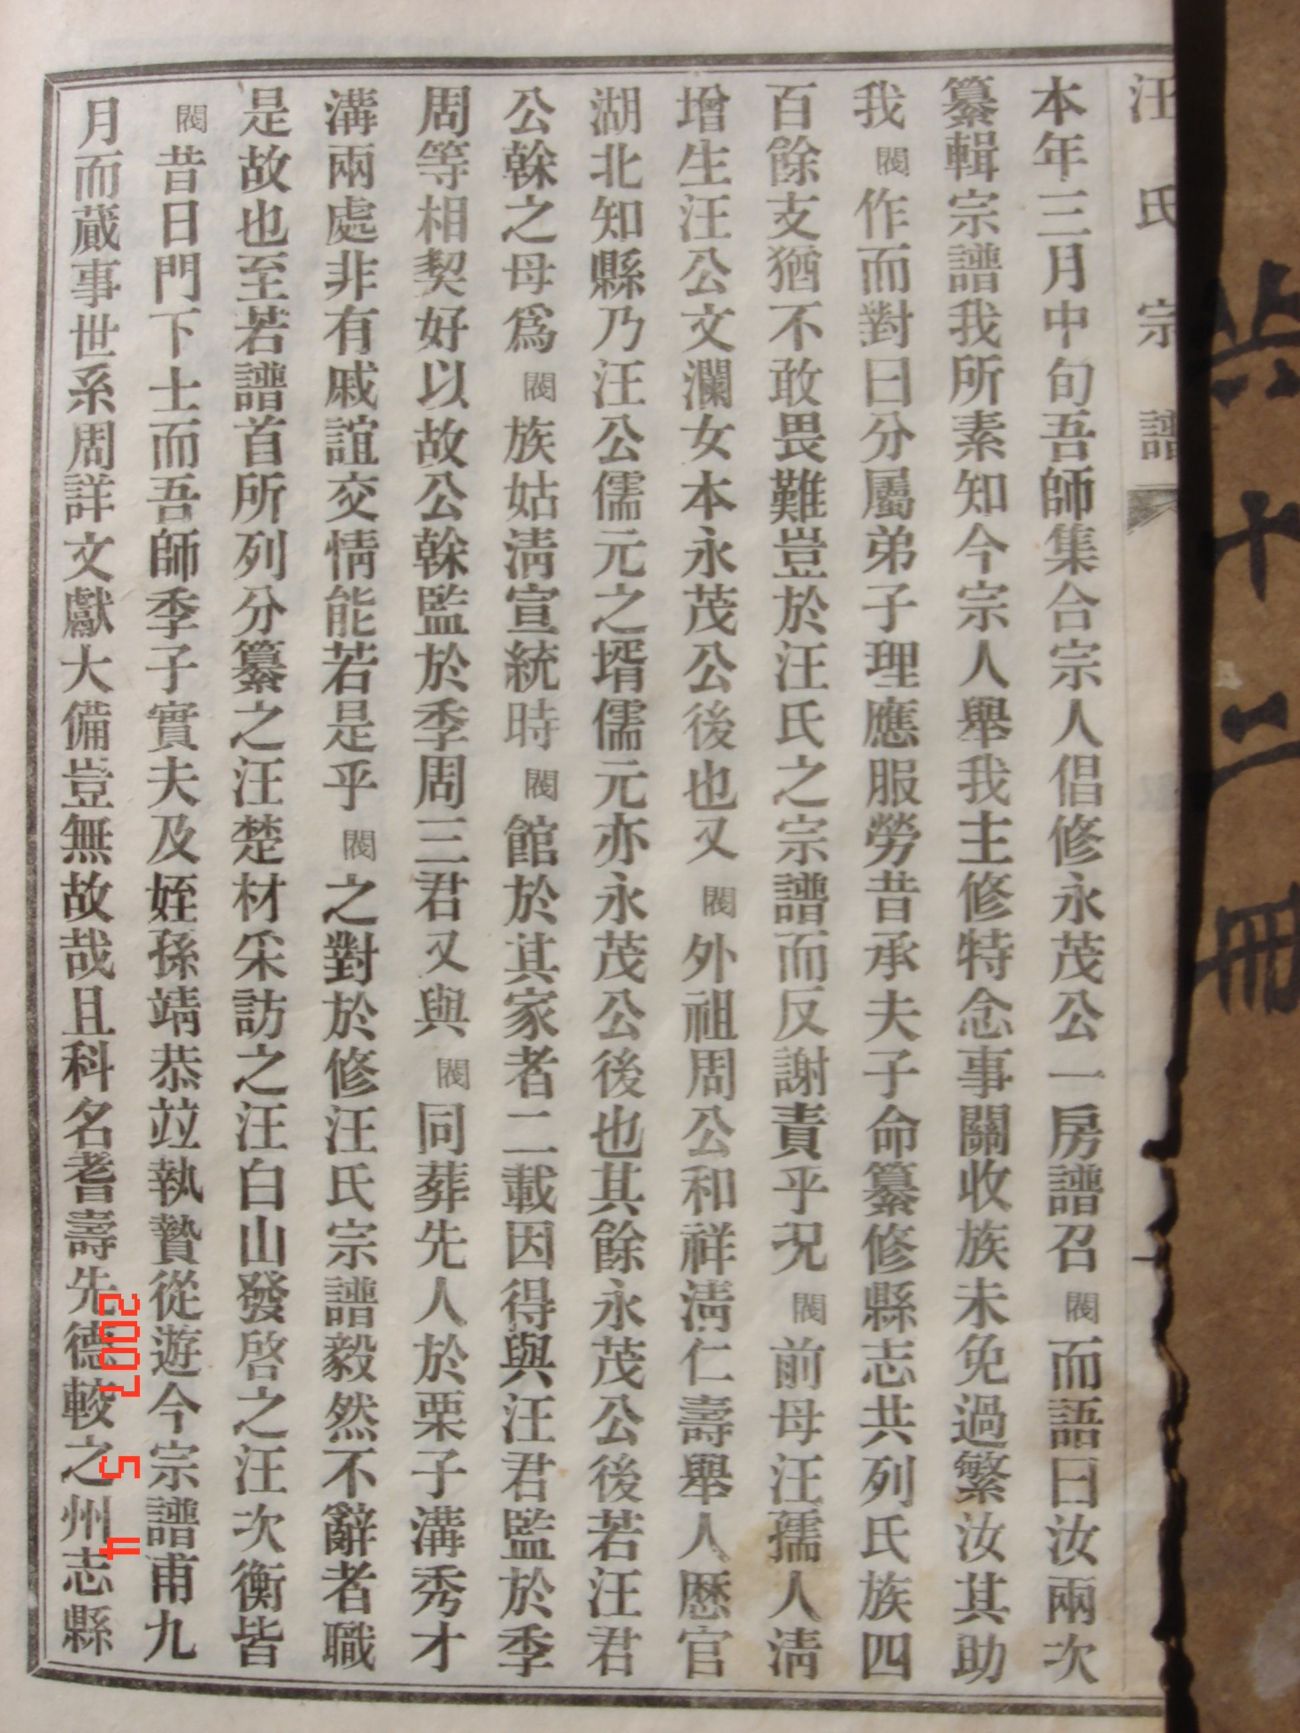 汪氏宗譜
本年三月中旬吾師集合宗人倡修永茂公一房譜召閣而語曰汝兩次
纂輯宗譜我所素知今宗人舉我主修特念事關收族未免過繁汝其助
我閣作而對曰分屬弟子理應服勞昔承夫子命纂修縣志共列氏族四
百餘支猶不敢畏難豈於汪氏之宗譜而反謝責乎況閣前母汪孺人清
增生汪公文瀾女本永茂公後也又閣外祖周公和祥清仁壽舉人歷官
湖北知縣乃汪公儒元之壻儒元亦永茂公後也其餘永茂公後若汪君
公榦之母爲閣族姑清宣統時閣館於其家者二載因得與汪君監於季
周等相契好以故公榦監於季周三君又與閣同葬先人於栗子溝秀才
溝兩處非有戚誼交情能若是乎閣之對於修汪氏宗譜毅然不辭者職
是故也至若譜首所列分纂之汪楚材采訪之汪白山發啓之汪次衡皆
閣昔日門下士而吾師季子實夫及姪孫靖恭竝執贄從遊今宗譜甫九
月而蕆事世系周詳文獻大備豈無故哉且科名耆壽先德較之州志縣
共十二冊
2007 5 4